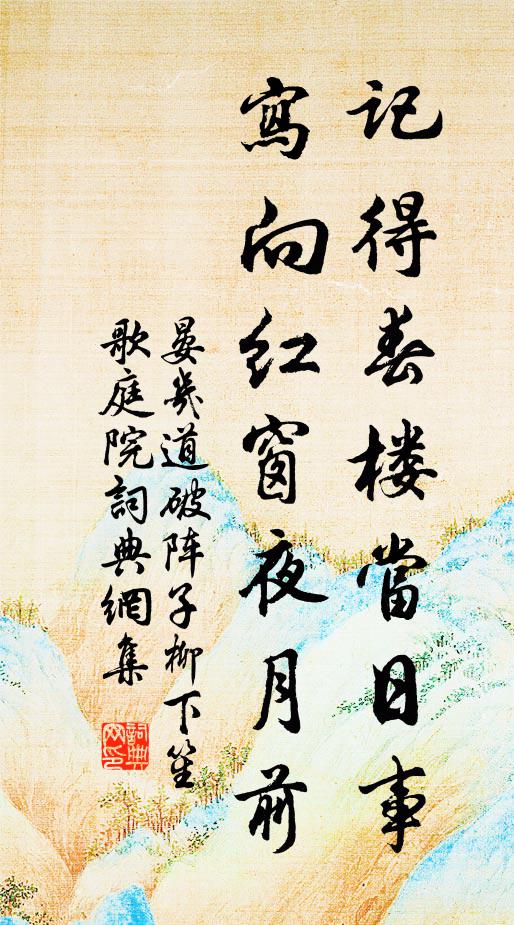 記得春楼當日事
寫向红窗夜月前
晏幾道破阵子柳下笙
歌庭院詞典網集
詞典網印